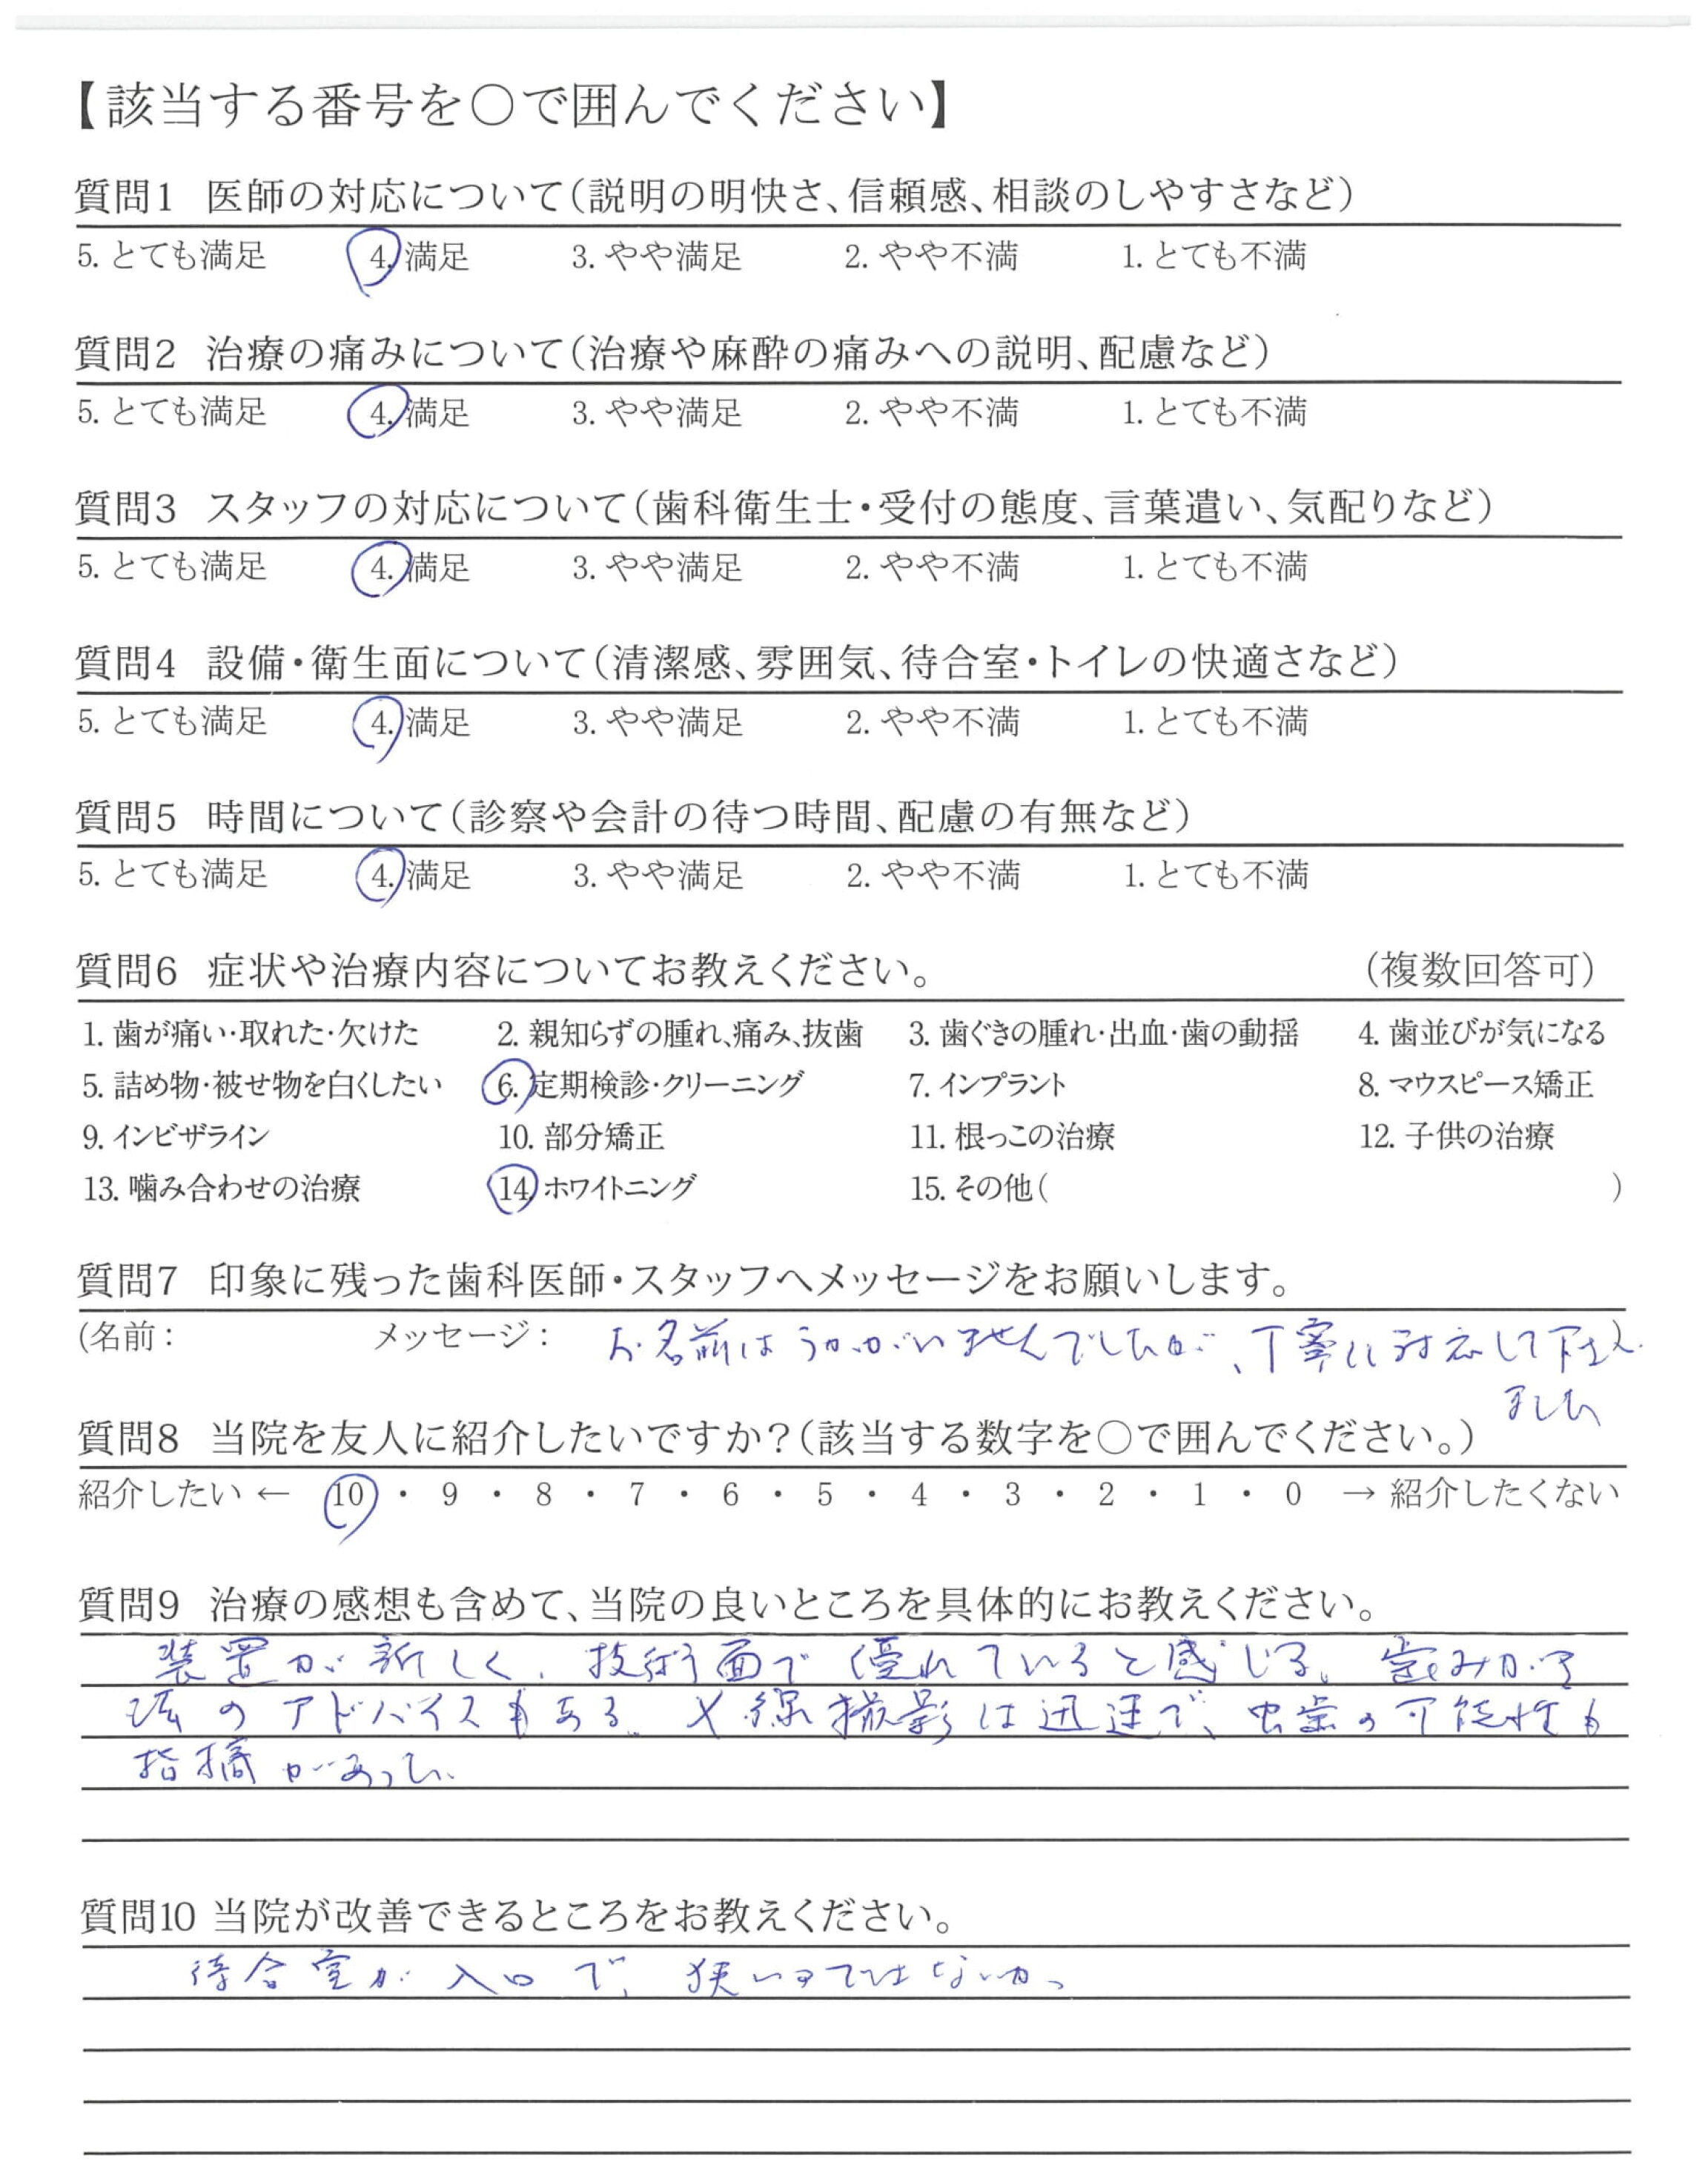 【該当する番号を○で囲んでください】
質問1 医師の対応について(説明の明快さ、信頼感、相談のしやすさなど)
5. とても満足 4. 満足 3. やや満足 2. やや不満 1. とても不満
質問2 治療の痛みについて(治療や麻酔の痛みへの説明、配慮など)
5. とても満足 4. 満足 3. やや満足 2. やや不満 1. とても不満
質問3 スタッフの対応について(歯科衛生士・受付の態度、言葉遣い、気配りなど)
5. とても満足 4. 満足 3. やや満足 2. やや不満 1. とても不満
質問4 設備・衛生面について(清潔感、雰囲気、待合室・トイレの快適さなど)
5. とても満足 4. 満足 3. やや満足 2. やや不満 1. とても不満
質問5 時間について(診察や会計の待つ時間、配慮の有無など)
5. とても満足 4. 満足 3. やや満足 2. やや不満 1. とても不満
質問6 症状や治療内容についてお教えください。 (複数回答可)
1. 歯が痛い・取れた・欠けた 2. 親知らずの腫れ、痛み、抜歯 3. 歯ぐきの腫れ・出血・歯の動揺 4. 歯並びが気になる
5. 詰め物・被せ物を白くしたい 6. 定期検診・クリーニング 7. インプラント 8. マウスピース矯正
9. インビザライン 10. 部分矯正 11. 根っこの治療 12. 子供の治療
13. 噛み合わせの治療 14. ホワイトニング 15. その他( )
質問7 印象に残った歯科医師・スタッフへメッセージをお願いします。
(名前: メッセージ: お名前はうかがいませんでしたが、丁寧に対応して下さい)
ました
質問8 当院を友人に紹介したいですか?(該当する数字を○で囲んでください。)
紹介したい ← 10 ・ 9 ・ 8 ・ 7 ・ 6 ・ 5 ・ 4 ・ 3 ・ 2 ・ 1 ・ 0 → 紹介したくない
質問9 治療の感想も含めて、当院の良いところを具体的にお教えください。
装置が新しく、技術面で優れていると感じる。歯みがき
法のアドバイスもある。X線撮影は迅速で、虫歯の可能性も
指摘があった。
質問10 当院が改善できるところをお教えください。
待合室が入口で、狭いのではないか。